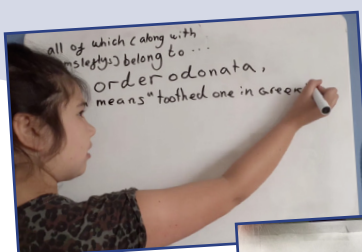 all of which (along with
msleflys) belong to ...
order odonata,
means "toothed one in Greek